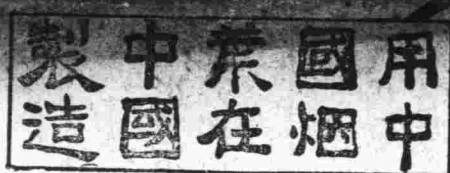 用中
國烟
葉在
中國
製造